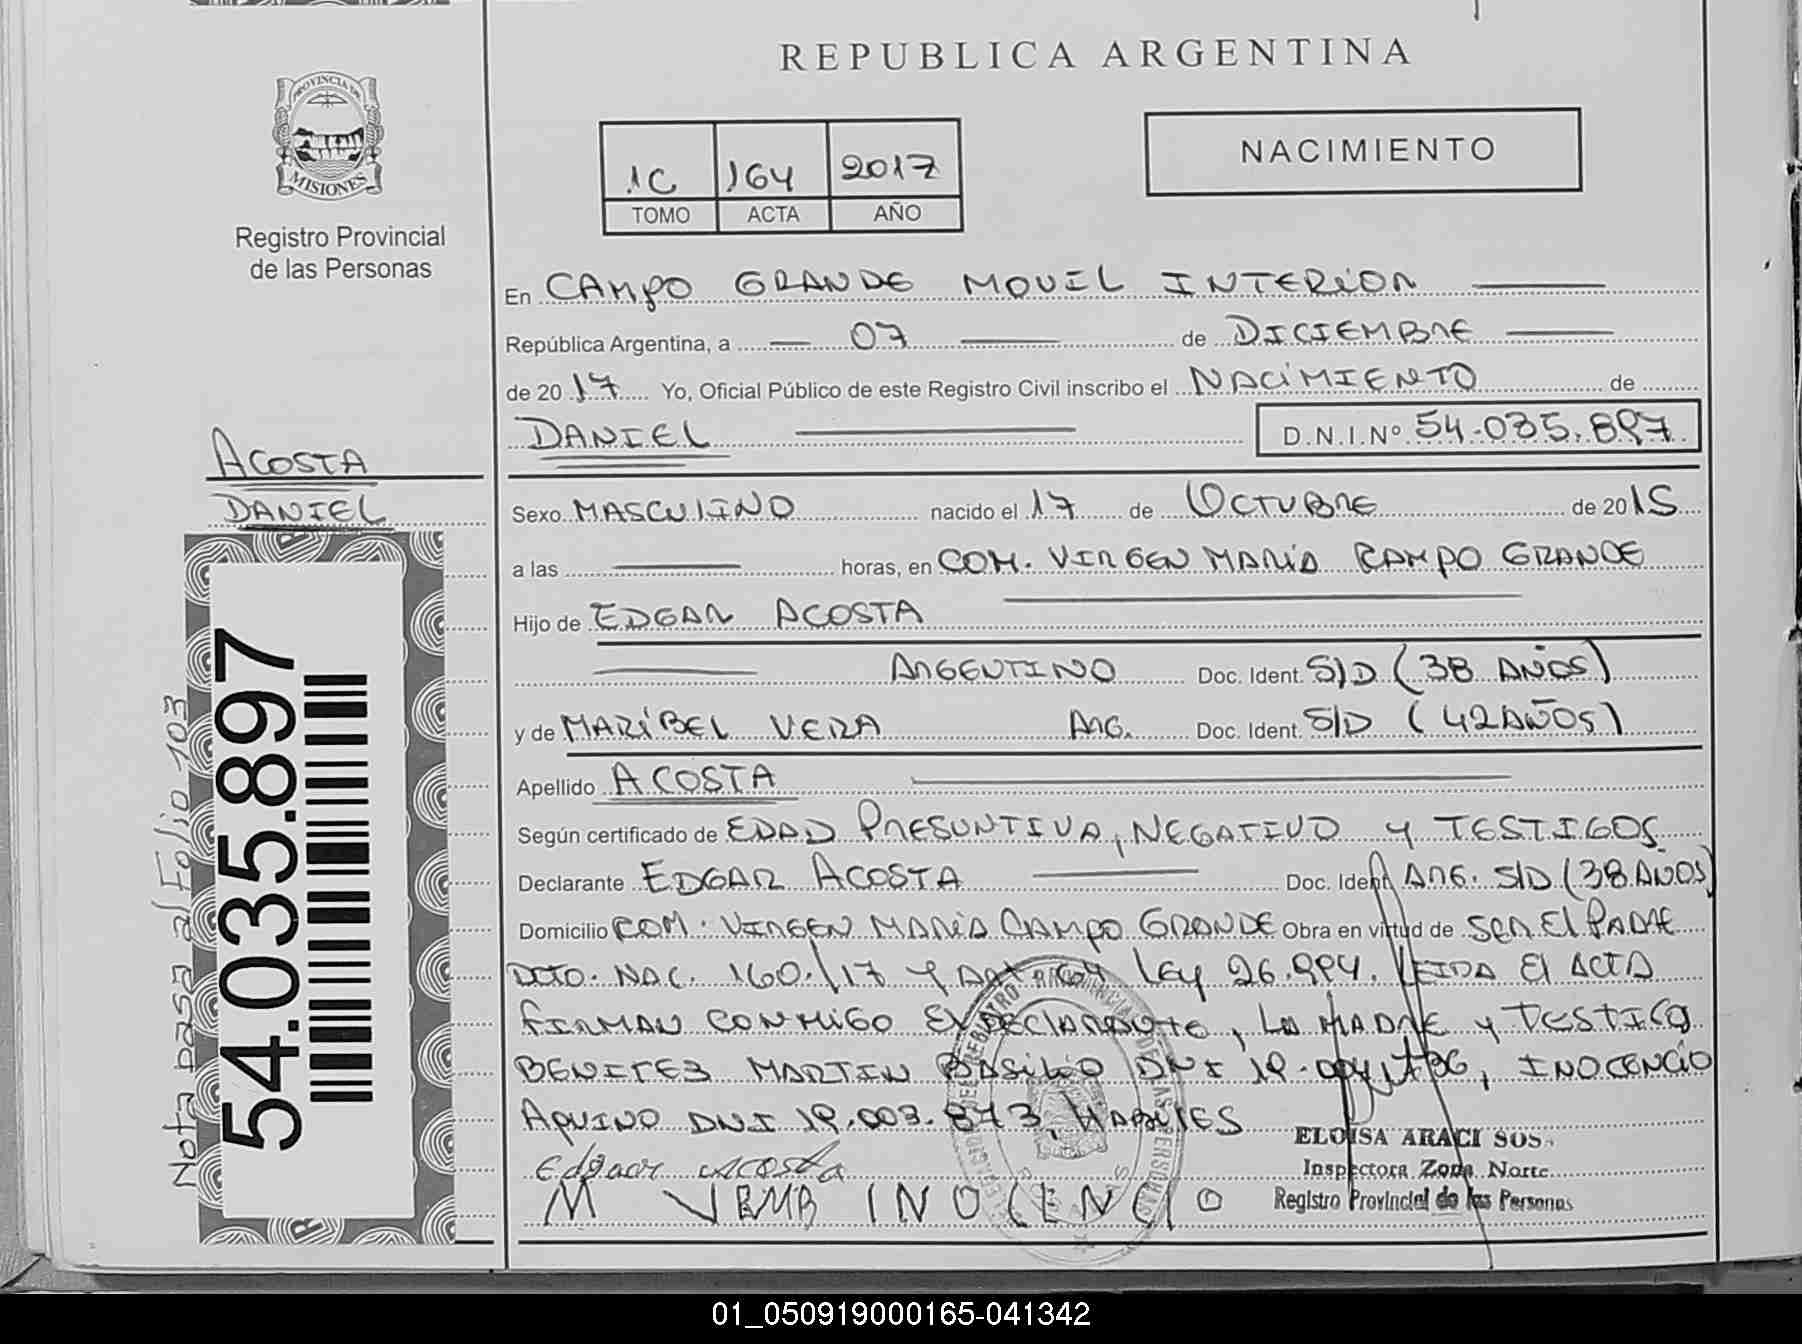 REPUBLICA ARGENTINA
PROVINCIA DE
MISIONES
Registro Provincial
de las Personas
NACIMIENTO
1C 164 2017
TOMO ACTA AÑO
En CAMPO GRANDE MOVIL INTERIOR
República Argentina, a 07 de DICIEMBRE
de 2017 Yo, Oficial Público de este Registro Civil inscribo el NACIMIENTO de
DANIEL D.N.I.Nº 54.035.897
ACOSTA
DANIEL
Sexo MASCULINO nacido el 17 de OCTUBRE de 2015
a las horas, en COM. VIRGEN MARIA CAMPO GRANDE
Hijo de EDGAR ACOSTA
ARGENTINO Doc. Ident. S/D (38 AÑOS)
y de MARIBEL VERA ARG. Doc. Ident. S/D (42 AÑOS)
Apellido ACOSTA
Según certificado de EDAD PRESUNTIVA, NEGATIVO Y TESTIGOS
Declarante EDGAR ACOSTA Doc. Ident ARG. S/D (38 AÑOS)
Domicilio COM. VIRGEN MARIA CAMPO GRANDE Obra en virtud de SER El PADRE
DCTO. NAC. 160/17 Y ART. Ley 26.994. LEIDA El ACTA
FIRMAN CONMIGO El DECLARANTE, LA MADRE y TESTIGO
BENITEZ MARTIN BASILIO DNI 19., INOCENCIO
AQUINO DNI 19.003.873, HABILES
Edgar acosta
M VERA INOCENCIO
ELOISA ARACI SOSA
Inspectora Zona Norte
Registro Provincial de las Personas
54.035.897
Nota pasa al Folio 103
01_050919000165-041342